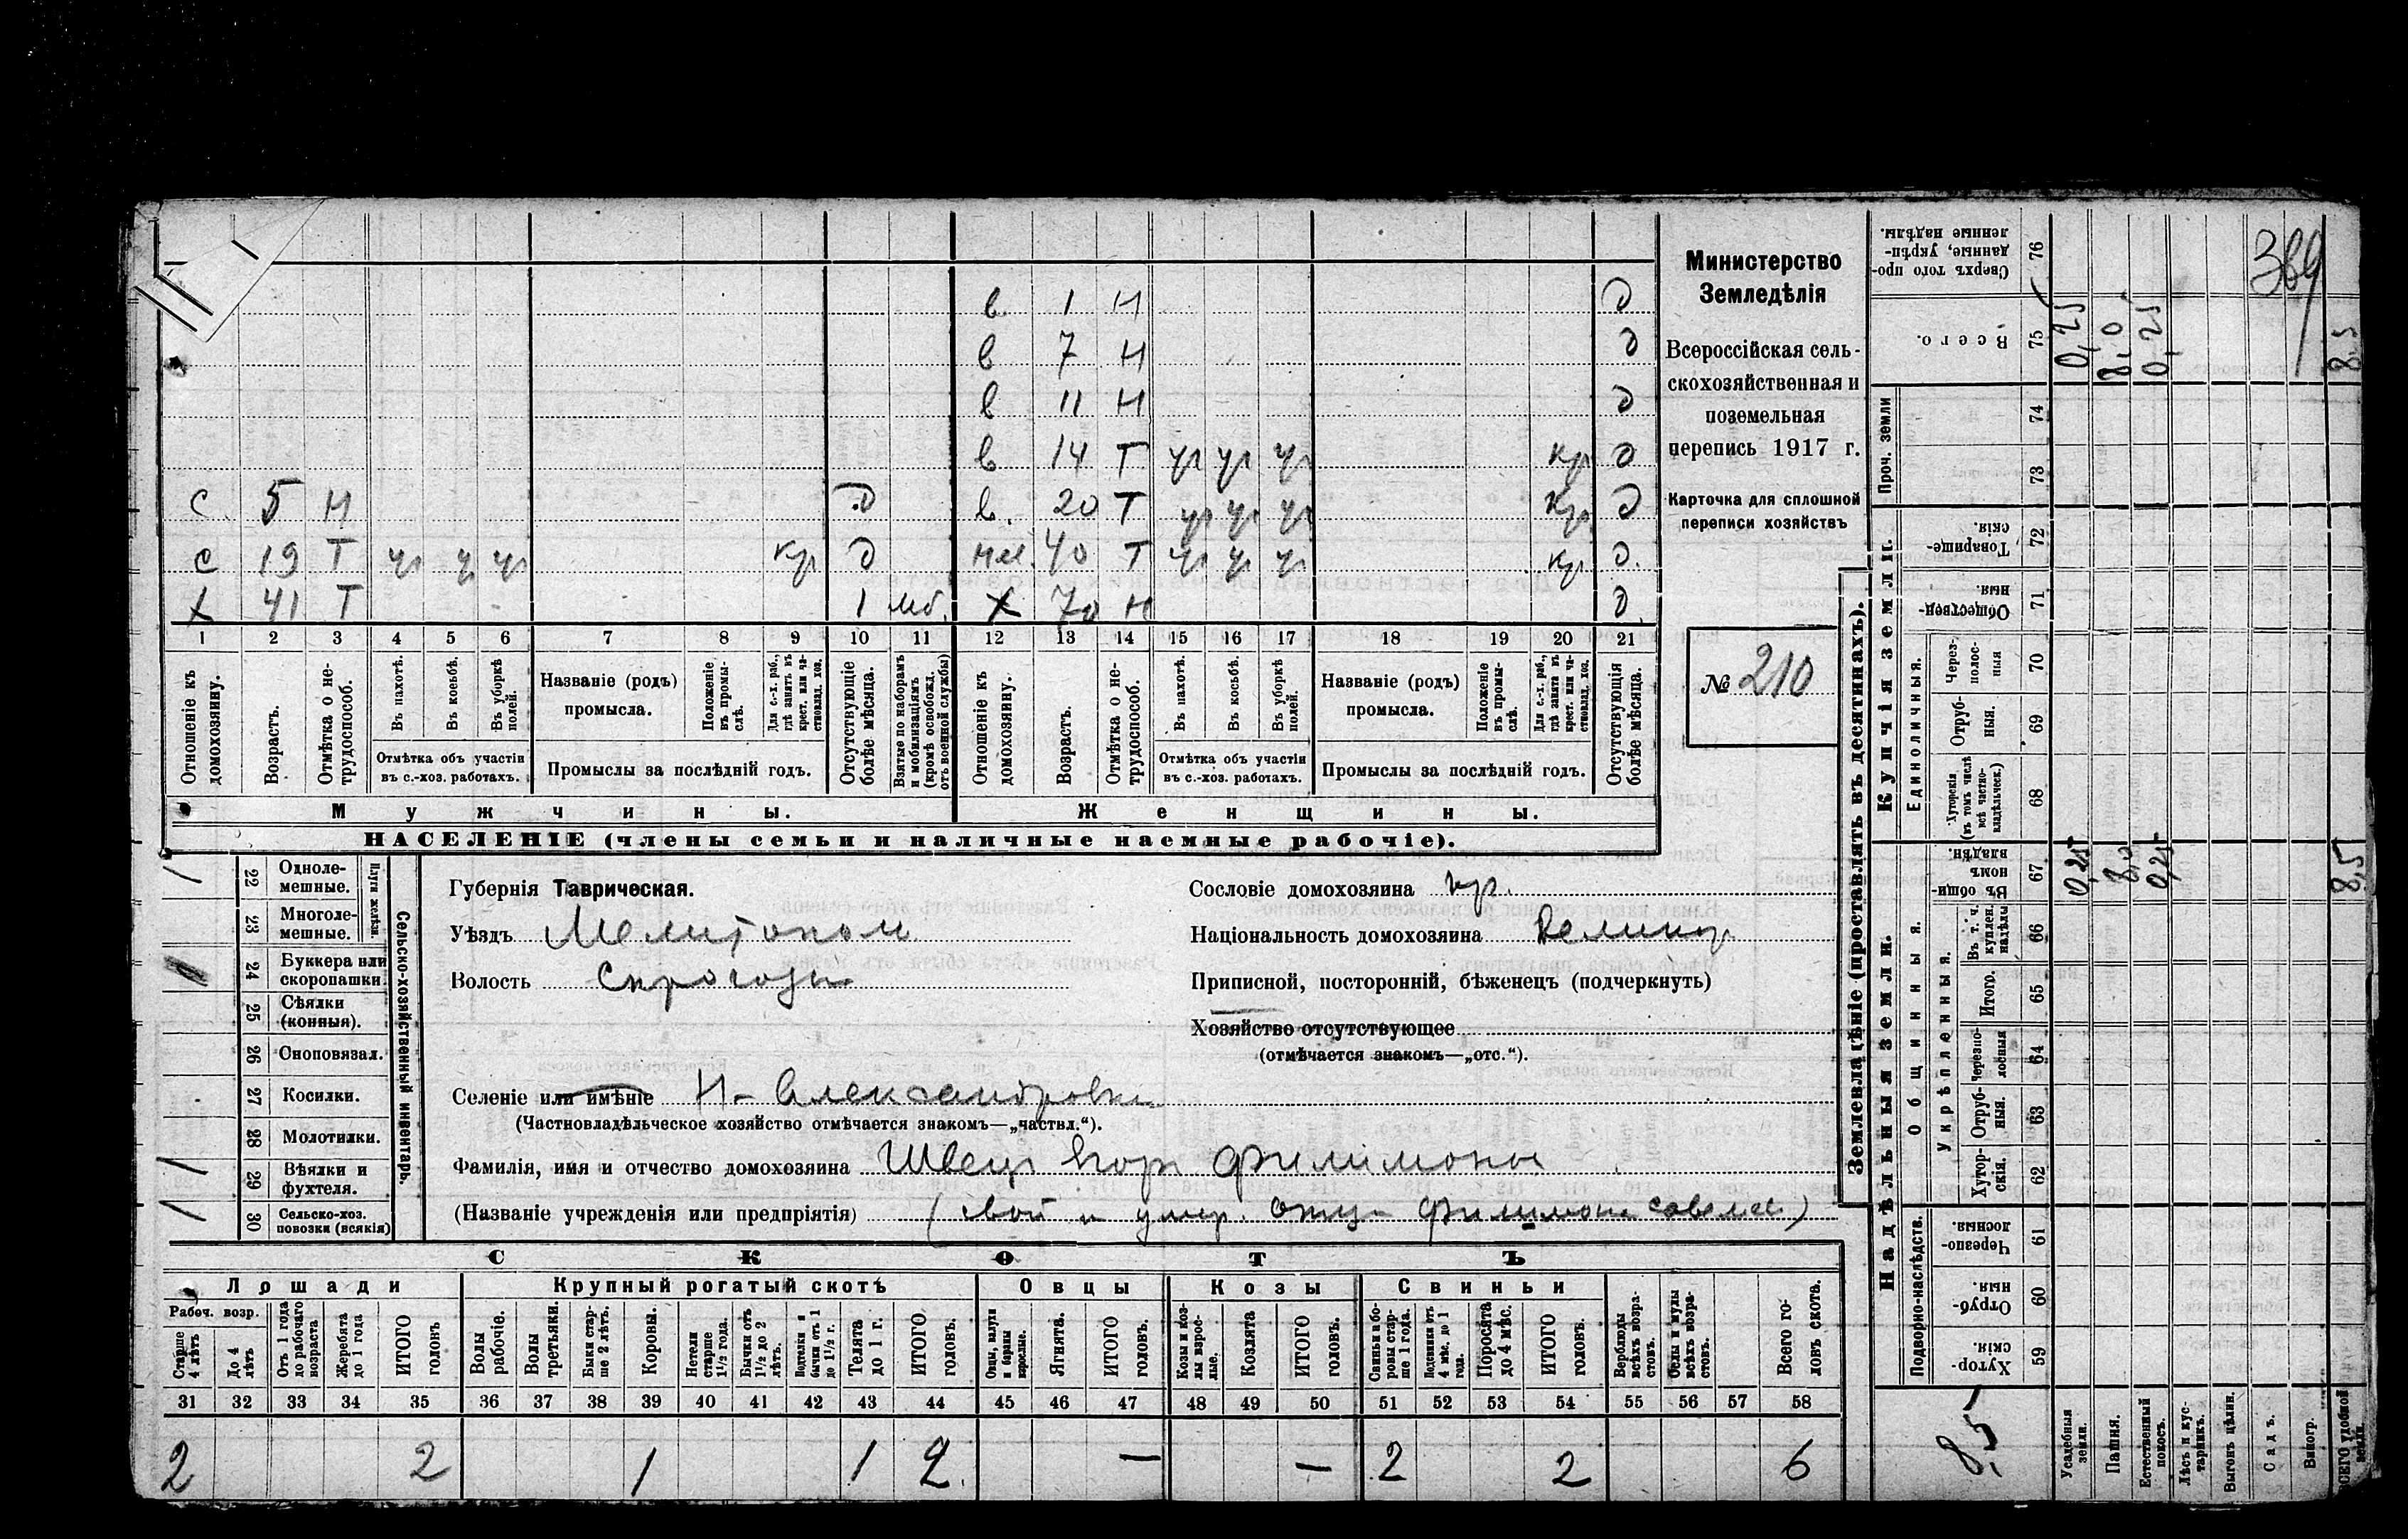 Министерство
Земледѣлія
Всероссійская сель-
скохозяйственная и
поземельная
перепись 1917 г.
Карточка для сплошной
переписи хозяйствъ
№ 210
389
в 1 Н д
в 7 Н д
в 11 Н д
в 14 Т уг уг уг кр д
с 5 Н д в. 20 Т уг уг уг кр д
с 19 Т уг уг уг кр д жен. 40 Т уг уг уг кр д.
х 41 Т 1 мб. х 70 Н д.
1 2 3 4 5 6 7 8 9 10 11 12 13 14 15 16 17 18 19 20 21
Отношеніе къ домохозяину.
Возрастъ.
Отмѣтка о не-трудоспособ.
Въ пахотѣ.
Въ косьбѣ.
Въ уборкѣ полей.
Отмѣтка объ участіи
въ с.-хоз. работахъ.
Названіе (родъ)
промысла.
Положеніе въ промы-слѣ.
Для с.-х. раб., гдѣ занятъ въ крест. или ча-стновлад. хоз.
Промыслы за послѣдній годъ.
Отсутствующіе болѣе мѣсяца.
Взятые по наборамъ и мобилизаціямъ (кромѣ освобожд. отъ военной службы)
Отношеніе къ домохозяину.
Возрастъ.
Отмѣтка о не-трудоспособ.
Въ пахотѣ.
Въ косьбѣ.
Въ уборкѣ полей.
Отмѣтка объ участіи
въ с.-хоз. работахъ.
Названіе (родъ)
промысла.
Положеніе въ промы-слѣ.
Для с.-х. раб., гдѣ занята въ крест. или ча-стновлад. хоз.
Промыслы за послѣдній годъ.
Отсутствующія болѣе мѣсяца.
Мужчины. Женщины.
НАСЕЛЕНІЕ (члены семьи и наличные наемные рабочіе).
Сельско-хозяйственный инвентарь.
Плуги желѣзн.
1 22 Одноле-мешные.
23 Многоле-мешные.
24 Буккера или скоропашки.
25 Сѣялки (конныя).
26 Сноповязал.
27 Косилки.
28 Молотилки.
1 29 Вѣялки и фухтеля.
1 30 Сельско-хоз. повозки (всякія)
Губернія Таврическая.
Уѣздъ Мелитопол
Волость С рогозы
Селеніе или имѣніе Н-Александровка
(Частновладѣльческое хозяйство отмѣчается знакомъ—„частвл.“).
Фамилія, имя и отчество домохозяина Швецъ Егоръ Филимоно
(Названіе учрежденія или предпріятія) (свой и умер. отца Филимона Савелье)
Сословіе домохозяина кр.
Національность домохозяина Великор
Приписной, посторонній, бѣженецъ (подчеркнуть)
Хозяйство отсутствующее
(отмѣчается знакомъ—„отс.“).
СКОТЪ
Лошади Крупный рогатый скотъ Овцы Козы Свиньи
Рабоч. возр.
Старше 4 лѣтъ
До 4 лѣтъ
Отъ 1 года до рабочаго возраста
Жеребята до 1 года
ИТОГО головъ
Волы рабочіе.
Волы третьяки.
Быки стар-ше 2 лѣтъ.
Коровы.
Нетели старше 1½ года.
Бычки отъ 1½ до 2 лѣтъ.
Подтелки и бычки отъ 1 до 1½ г.
Телята до 1 г.
ИТОГО головъ.
Овцы, валухи и бараны взрослые.
Ягнята.
ИТОГО головъ.
Козы и коз-лы взрос-лые.
Козлята
ИТОГО головъ.
Свиньи и бо-ровы стар-ше 1 года.
Подсвинки отъ 4 мѣс. до 1 года.
Поросята до 4 мѣс.
ИТОГО головъ.
Верблюды всѣхъ возра-стовъ.
Ослы и мулы всѣхъ возра-стовъ.
Всего го-ловъ скота.
31 32 33 34 35 36 37 38 39 40 41 42 43 44 45 46 47 48 49 50 51 52 53 54 55 56 57 58
2 2 1 1 2. — — 2 2 6
Землевладѣніе (проставлять въ десятинахъ).
Надѣльныя земли. Купчія земли.
Проч. земли
Подворно-наслѣдств.
Общинныя.
Укрѣпленныя.
Единоличныя.
Сверхъ того про-данные, укрѣп-ленные надѣлы. 76
Всего. 75 0,25 8,0 0,25 8,5
74
73
Товарище-скія. 72
Обществен-ныя 71
Через-полос-ныя 70
Отруб-ныя. 69
Хуторскія (въ томъ числѣ всѣ частно-владѣльческ.) 68
Въ общи-номъ владѣн. 67 0,25 8,0 0,25 8,5
Въ т. ч. куплен. надѣлы 66
Итого. 65
Черезпо-лосныя 64
Отруб-ныя. 63
Хутор-скія. 62
Черезпо-лосныя. 61
Отруб-ныя. 60
Хутор-скія 59
8,5
Усадебныя земли.
Пашня.
Естественный покосъ.
Лѣсъ и кус-тарникъ.
Выгонъ цѣлин.
Садъ.
Виногр.
ВСЕГО удобной земли.